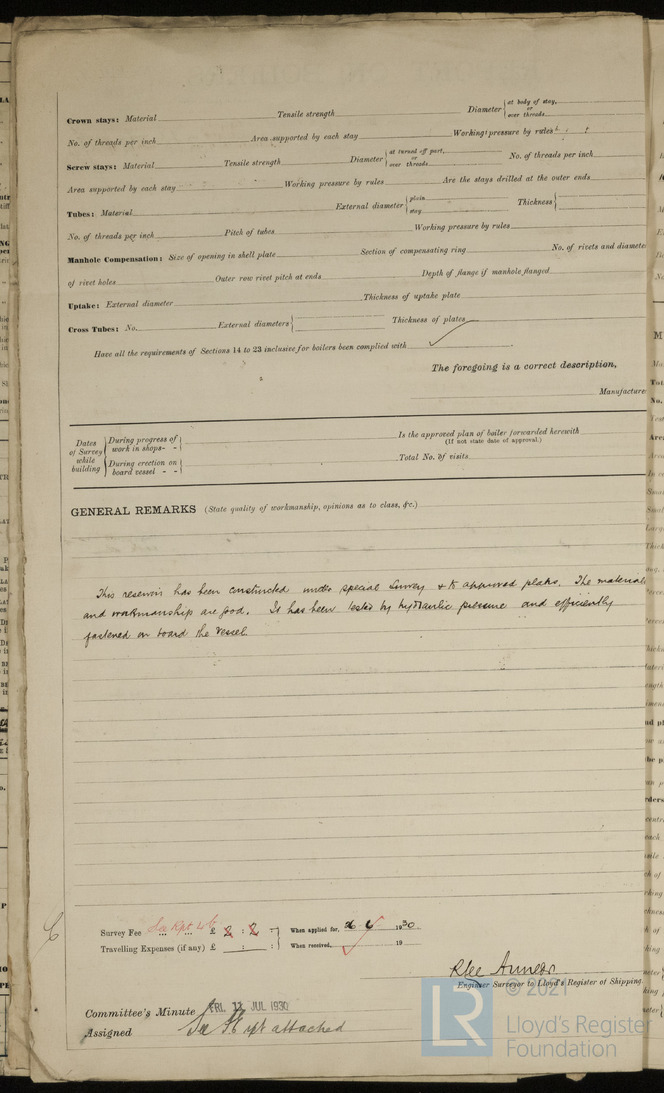 Crown stays: Material Tensile strength Diameter at body of stay, or over threads
No. of threads per inch Area supported by each stay Working pressure by rules
Screw stays: Material Tensile strength Diameter at turned off part, or over threads No. of threads per inch
Area supported by each stay Working pressure by rules Are the stays drilled at the outer ends
Tubes: Material External diameter plain stay Thickness
No. of threads per inch Pitch of tubes Working pressure by rules
Manhole Compensation: Size of opening in shell plate Section of compensating ring No. of rivets and diamete
of rivet holes Outer row rivet pitch at ends Depth of flange if manhole flanged
Uptake: External diameter Thickness of uptake plate
Cross Tubes: No. External diameters Thickness of plates
Have all the requirements of Sections 14 to 23 inclusive for boilers been complied with
The foregoing is a correct description,
Manufacture
Dates of Survey while building
During progress of work in shops - -
During erection on board vessel - -
Is the approved plan of boiler forwarded herewith
(If not state date of approval.)
Total No. of visits
GENERAL REMARKS (State quality of workmanship, opinions as to class, &c.)
This reservoir has been constructed under special survey & to approved plans. The material
and workmanship are good. It has been tested by hydraulic pressure and efficiently
fastened on board the vessel.
Survey Fee £ : : When applied for, 1930
Travelling Expenses (if any) £ : : When received, 19
Engineer Surveyor to Lloyd's Register of Shipping.
Committee's Minute FRI. 11 JUL 1930
Assigned See rpt attached
© 2021
LR
Lloyd's Register
Foundation